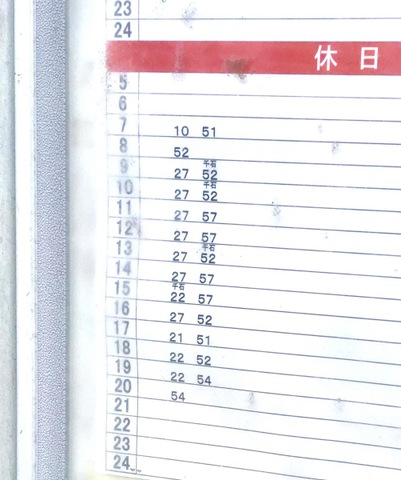 23
24
休日
5
6
7 10 51
8 52
千石
9 27 52
千石
10 27 52
11 27 57
12 27 57
千石
13 27 52
14 27 57
千石
15 22 57
16 27 52
17 21 51
18 22 52
19 22 54
20 54
21
22
23
24